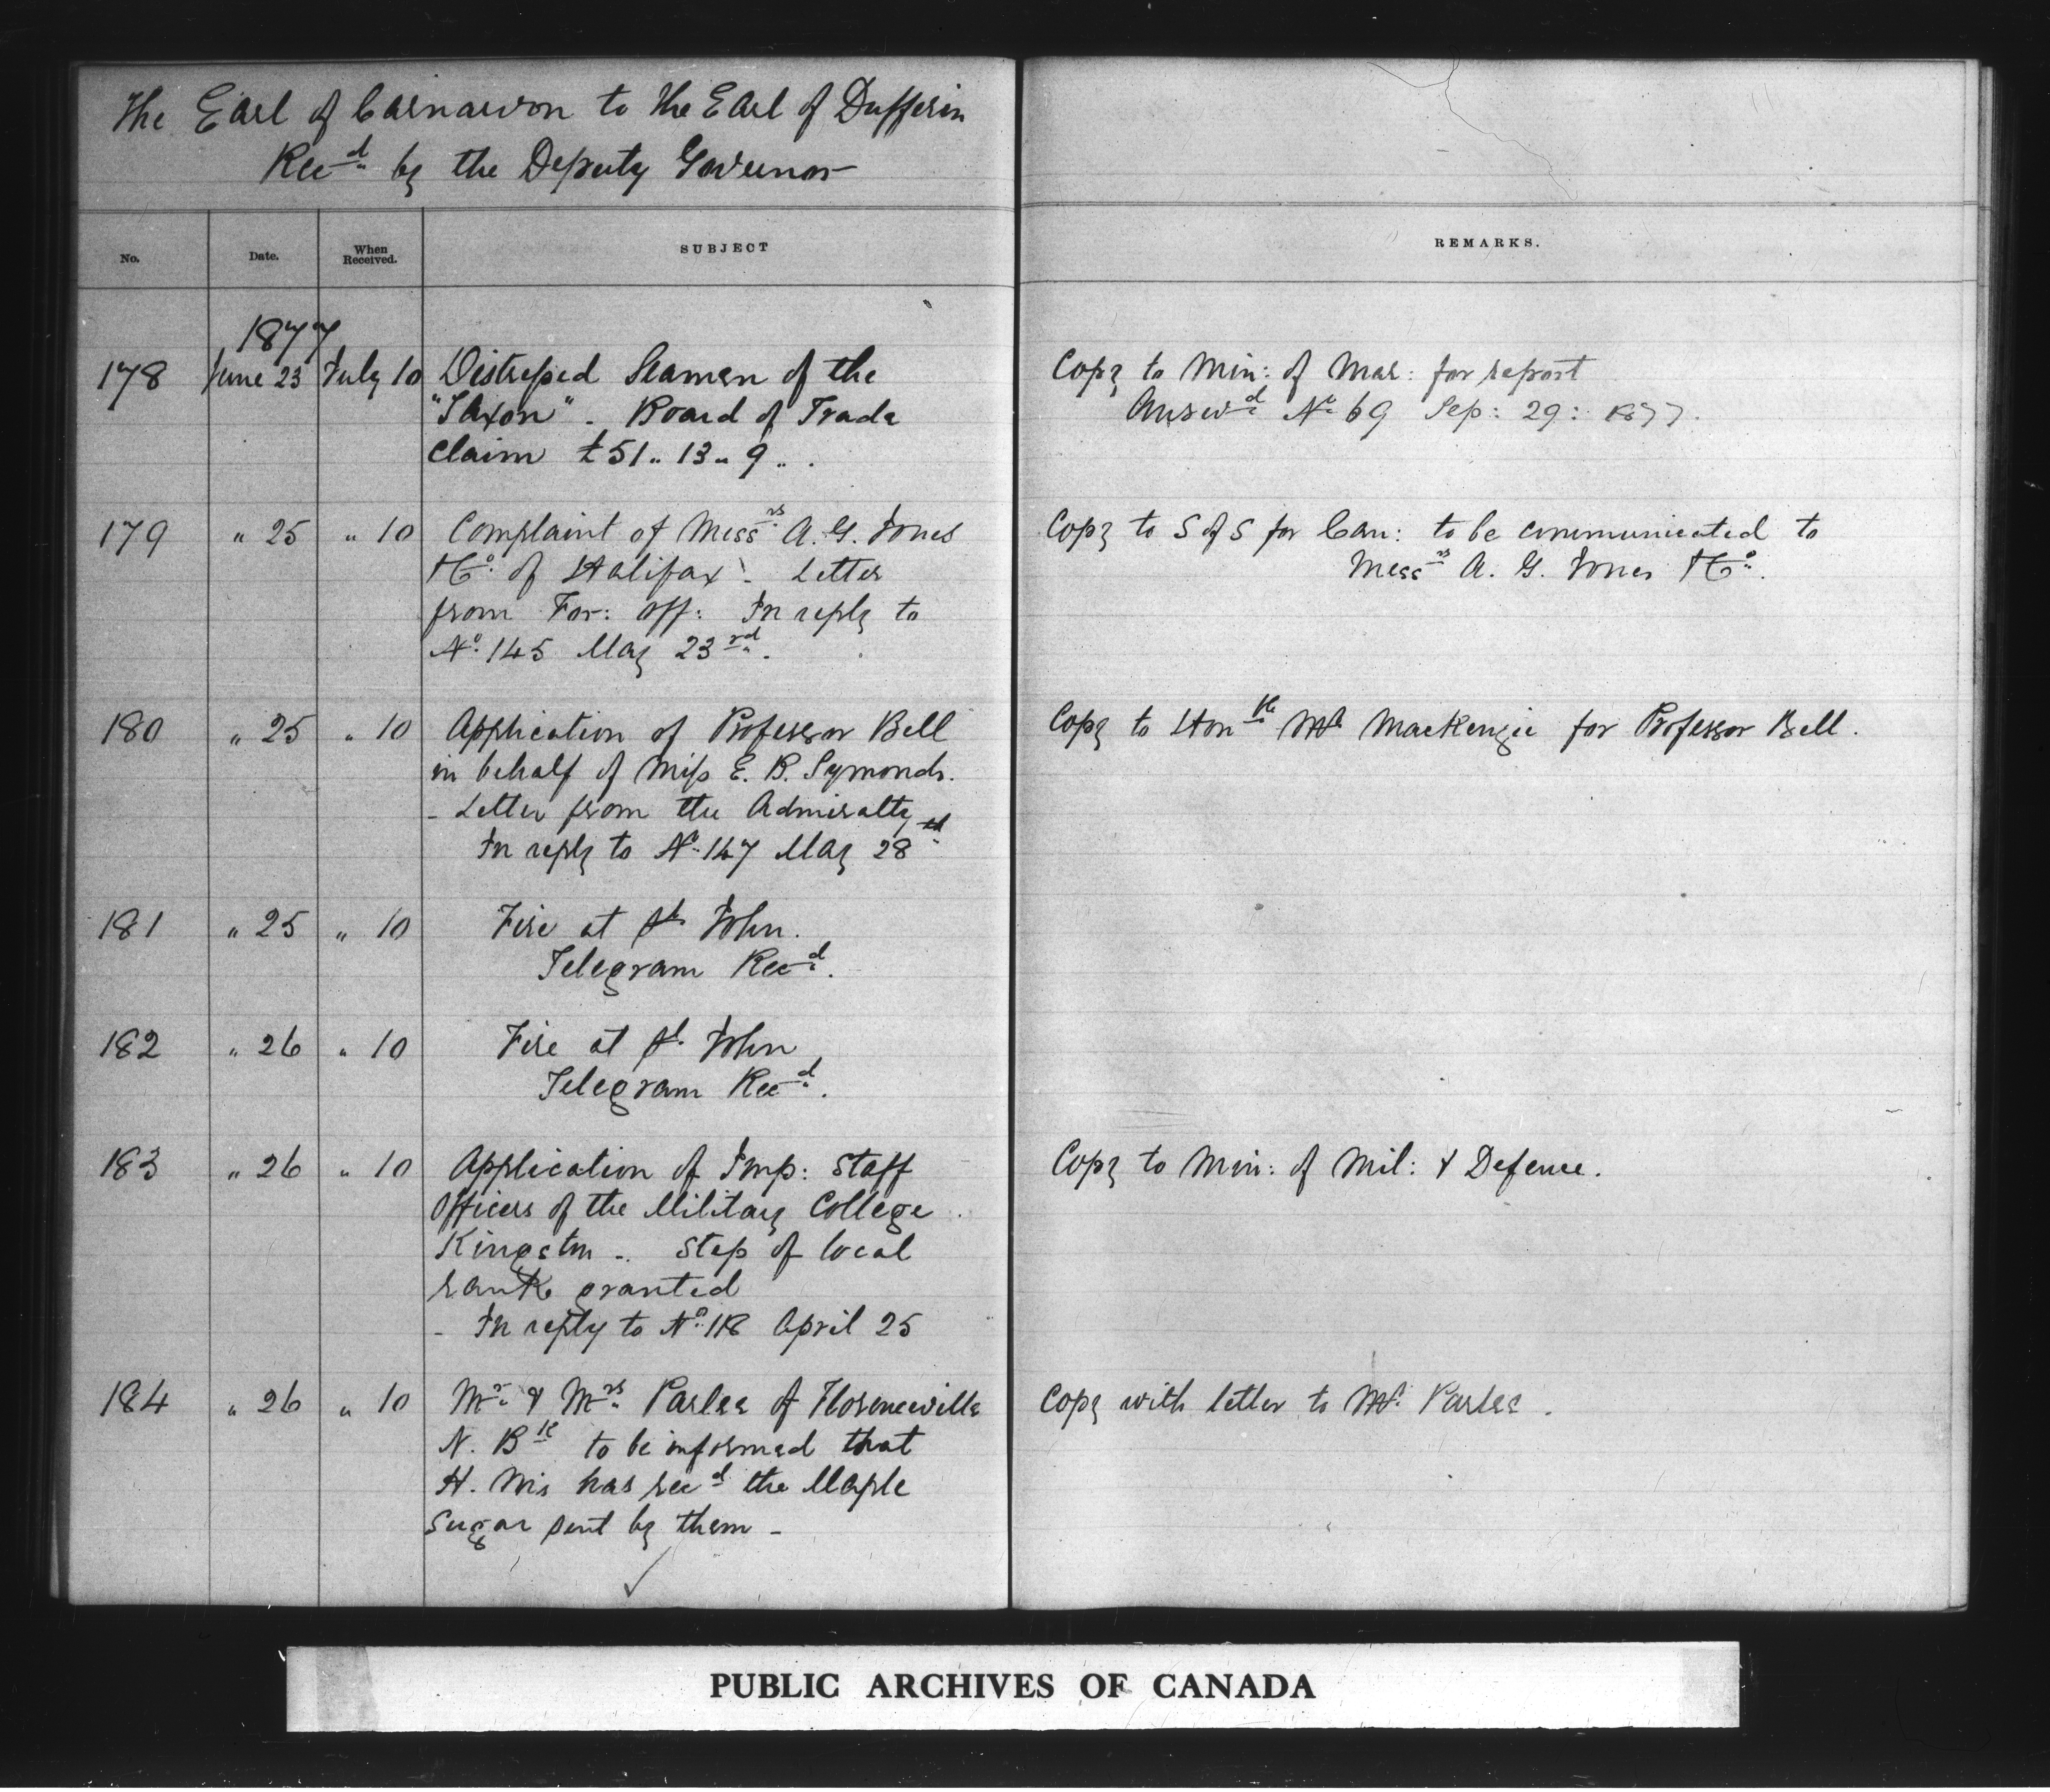 The Earl of Carnarvon to the Earl of Dufferin
Recd by the Deputy Governor
No. Date. When Received. SUBJECT REMARKS.
1877
178 June 23 July 10 Distressed Seamen of the Copy to Min: of Mar: for report
"Saxon" - Board of Trade Answd No 69 Sep: 29: 1877.
Claim £51 .. 13 .. 9 ...
179 " 25 " 10 Complaint of Messrs A. G. Jones Copy to S of S for Can: to be communicated to
& Co. of Halifax - Letter Messrs A. G. Jones & Co.
from For: Off: In reply to
No. 145 May 23rd.
180 " 25 " 10 Application of Professor Bell Copy to Honble Mr Mackenzie for Professor Bell.
in behalf of Miss E. B. Symonds.
- Letter from the Admiralty
In reply to No. 147 May 28th
181 " 25 " 10 Fire at St. John.
Telegram Recd.
182 " 26 " 10 Fire at St. John
Telegram Recd.
183 " 26 " 10 Application of Imp: Staff Copy to Min: of Mil: & Defence.
Officers of the Military College
Kingston - Step of local
rank granted
- In reply to No. 118 April 25
184 " 26 " 10 Mr. & Mrs. Parlee of Florenceville Copy with letter to Mr. Parlee.
N. Bk to be informed that
H. Mis has recd the Maple
Sugar sent by them -
PUBLIC ARCHIVES OF CANADA